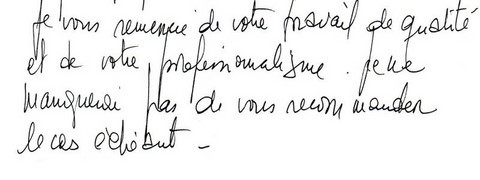 Je vous remercie de votre travail de qualité
et de votre professionnalisme. Je ne
manquerai pas de vous recommander
le cas échéant -